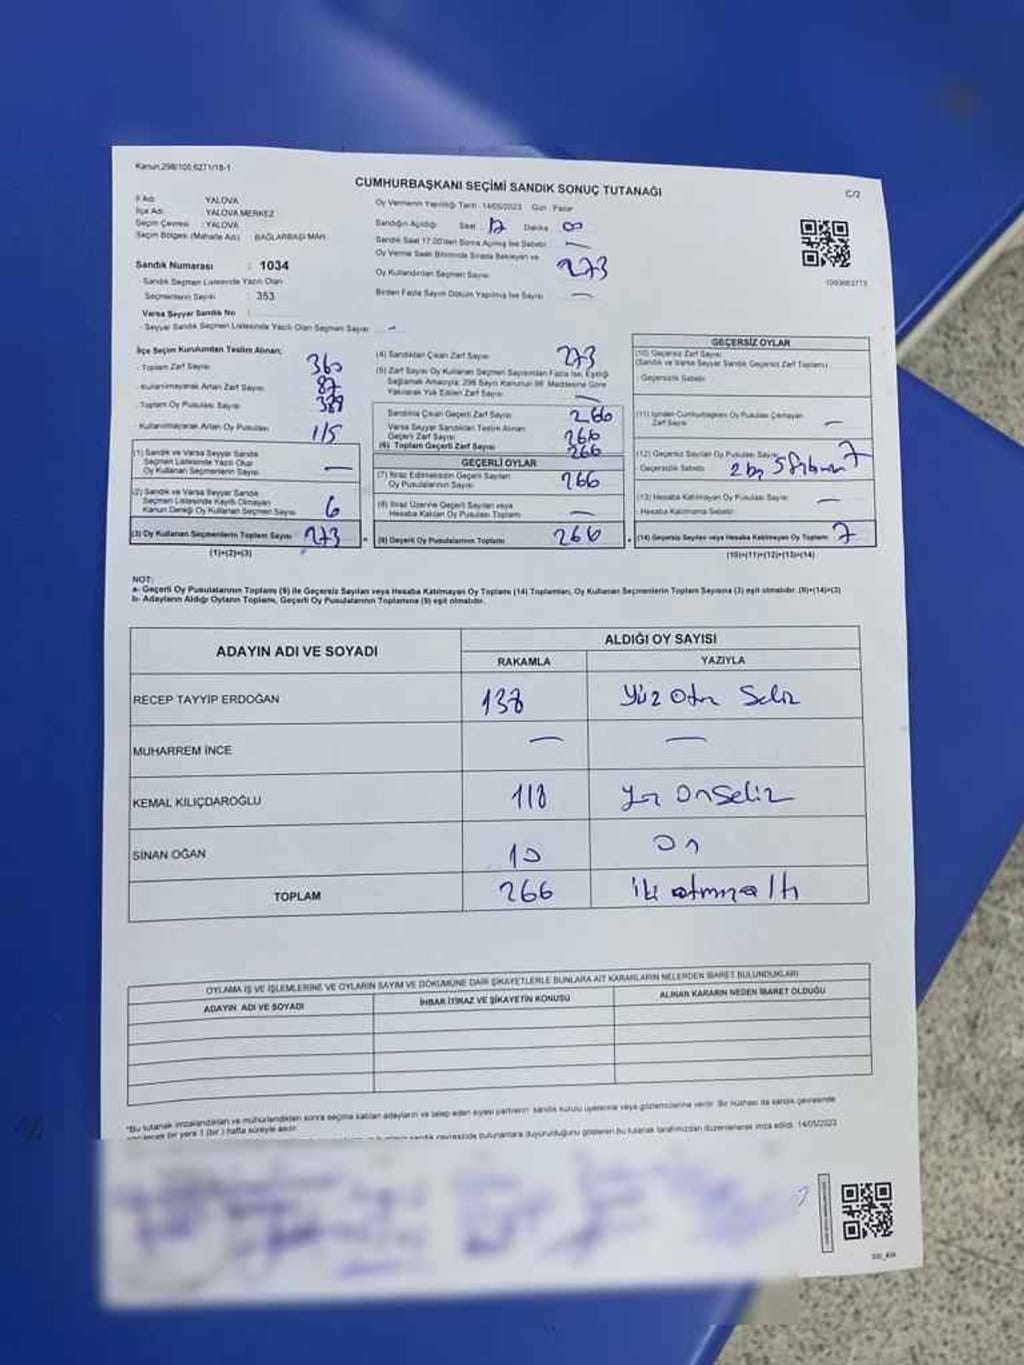 Kanun:298/105;6271/18-1
CUMHURBAŞKANI SEÇİMİ SANDIK SONUÇ TUTANAĞI
C/2
İl Adı : YALOVA
İlçe Adı : YALOVA MERKEZ
Seçim Çevresi : YALOVA
Seçim Bölgesi (Mahalle Adı) : BAĞLARBAŞI MAH.
Sandık Numarası : 1034
- Sandık Seçmen Listesinde Yazılı Olan
Seçmenlerin Sayısı : 353
Varsa Seyyar Sandık No :
- Seyyar Sandık Seçmen Listesinde Yazılı Olan Seçmen Sayısı : -
Oy Vermenin Yapıldığı Tarih : 14/05/2023 Gün : Pazar
Sandığın Açıldığı Saat Dakika
Sandık Saat 17.00'den Sonra Açılmış İse Sebebi : —
Oy Verme Saati Bitiminde Sırada Bekleyen ve
Oy Kullandırılan Seçmen Sayısı 273
Birden Fazla Sayım Döküm Yapılmış İse Sayısı : —
1093663773
İlçe Seçim Kurulundan Teslim Alınan;
- Toplam Zarf Sayısı 360
- Kullanılmayarak Artan Zarf Sayısı 87
- Toplam Oy Pusulası Sayısı
- Kullanılmayarak Artan Oy Pusulası 115
(1) Sandık ve Varsa Seyyar Sandık
Seçmen Listesinde Yazılı Olup
Oy Kullanan Seçmenlerin Sayısı —
(2) Sandık ve Varsa Seyyar Sandık
Seçmen Listesinde Kayıtlı Olmayan
Kanun Gereği Oy Kullanan Seçmen Sayısı 6
(3) Oy Kullanan Seçmenlerin Toplam Sayısı 273
(1)+(2)=(3)
(4) Sandıktan Çıkan Zarf Sayısı 273
(5) Zarf Sayısı Oy Kullanan Seçmen Sayısından Fazla İse, Eşitliği
Sağlamak Amacıyla, 298 Sayılı Kanunun 98. Maddesine Göre
Yakılarak Yok Edilen Zarf Sayısı —
Sandıkta Çıkan Geçerli Zarf Sayısı 266
Varsa Seyyar Sandıktan Teslim Alınan
Geçerli Zarf Sayısı 266
(6) Toplam Geçerli Zarf Sayısı 266
GEÇERLİ OYLAR
(7) İtiraz Edilmeksizin Geçerli Sayılan
Oy Pusulalarının Sayısı 266
(8) İtiraz Üzerine Geçerli Sayılan veya
Hesaba Katılan Oy Pusulası Toplamı —
(9) Geçerli Oy Pusulalarının Toplamı 266
GEÇERSİZ OYLAR
(10) Geçersiz Zarf Sayısı
(Sandık ve Varsa Seyyar Sandık Geçersiz Zarf Toplamı)
- Geçersizlik Sebebi:
(11) İçinden Cumhurbaşkanı Oy Pusulası Çıkmayan
Zarf Sayısı —
(12) Geçersiz Sayılan Oy Pusulası Sayısı 7
- Geçersizlik Sebebi:
(13) Hesaba Katılmayan Oy Pusulası Sayısı —
- Hesaba Katılmama Sebebi:
(14) Geçersiz Sayılan veya Hesaba Katılmayan Oy Toplamı 7
(10)+(11)+(12)+(13)=(14)
NOT:
a- Geçerli Oy Pusulalarının Toplamı (9) ile Geçersiz Sayılan veya Hesaba Katılmayan Oy Toplamı (14) Toplamları, Oy Kullanan Seçmenlerin Toplam Sayısına (3) eşit olmalıdır. (9)+(14)=(3)
b- Adayların Aldığı Oyların Toplamı, Geçerli Oy Pusulalarının Toplamına (9) eşit olmalıdır.
ADAYIN ADI VE SOYADI
ALDIĞI OY SAYISI
RAKAMLA YAZIYLA
RECEP TAYYİP ERDOĞAN 138 Yüz Otuz Sekiz
MUHARREM İNCE — —
KEMAL KILIÇDAROĞLU 118 Yüz Onsekiz
SİNAN OĞAN 10 On
TOPLAM 266
OYLAMA İŞ VE İŞLEMLERİNE VE OYLARIN SAYIM VE DÖKÜMÜNE DAİR ŞİKAYETLERLE BUNLARA AİT KARARLARIN NELERDEN İBARET BULUNDUKLARI
ADAYIN ADI VE SOYADI İHBAR İTİRAZ VE ŞİKAYETİN KONUSU ALINAN KARARIN NEDEN İBARET OLDUĞU
*Bu tutanak imzalandıktan ve mühürlendikten sonra seçime katılan adayların ve talep eden siyasi partilerin sandık kurulu üyelerine veya gözlemcilerine verilir. Bir nüshası da sandık çevresinde
bir yere 1 (bir) hafta süreyle asılır.
sandık çevresinde bulunanlara duyurulduğunu gösteren bu tutanak tarafımızdan düzenlenerek imza edildi. 14/05/2023